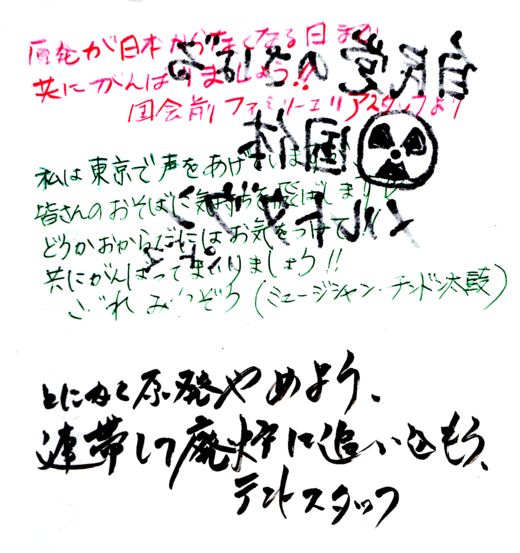 原発が日本からなくなる日まで
共にがんばりましょう!!
国会前ファミリーエリアスタッフより
自民党のさばる
国体
メルトダウン
私は東京で声をあげています
皆さんのおそばに気持ちを飛ばします
どうかおからだにはお気をつけて
共にがんばってまいりましょう!!
(ミュージシャン・チンドン太鼓)
とにかく原発やめよう、
連帯して廃炉に追いこもう、
テントスタッフ